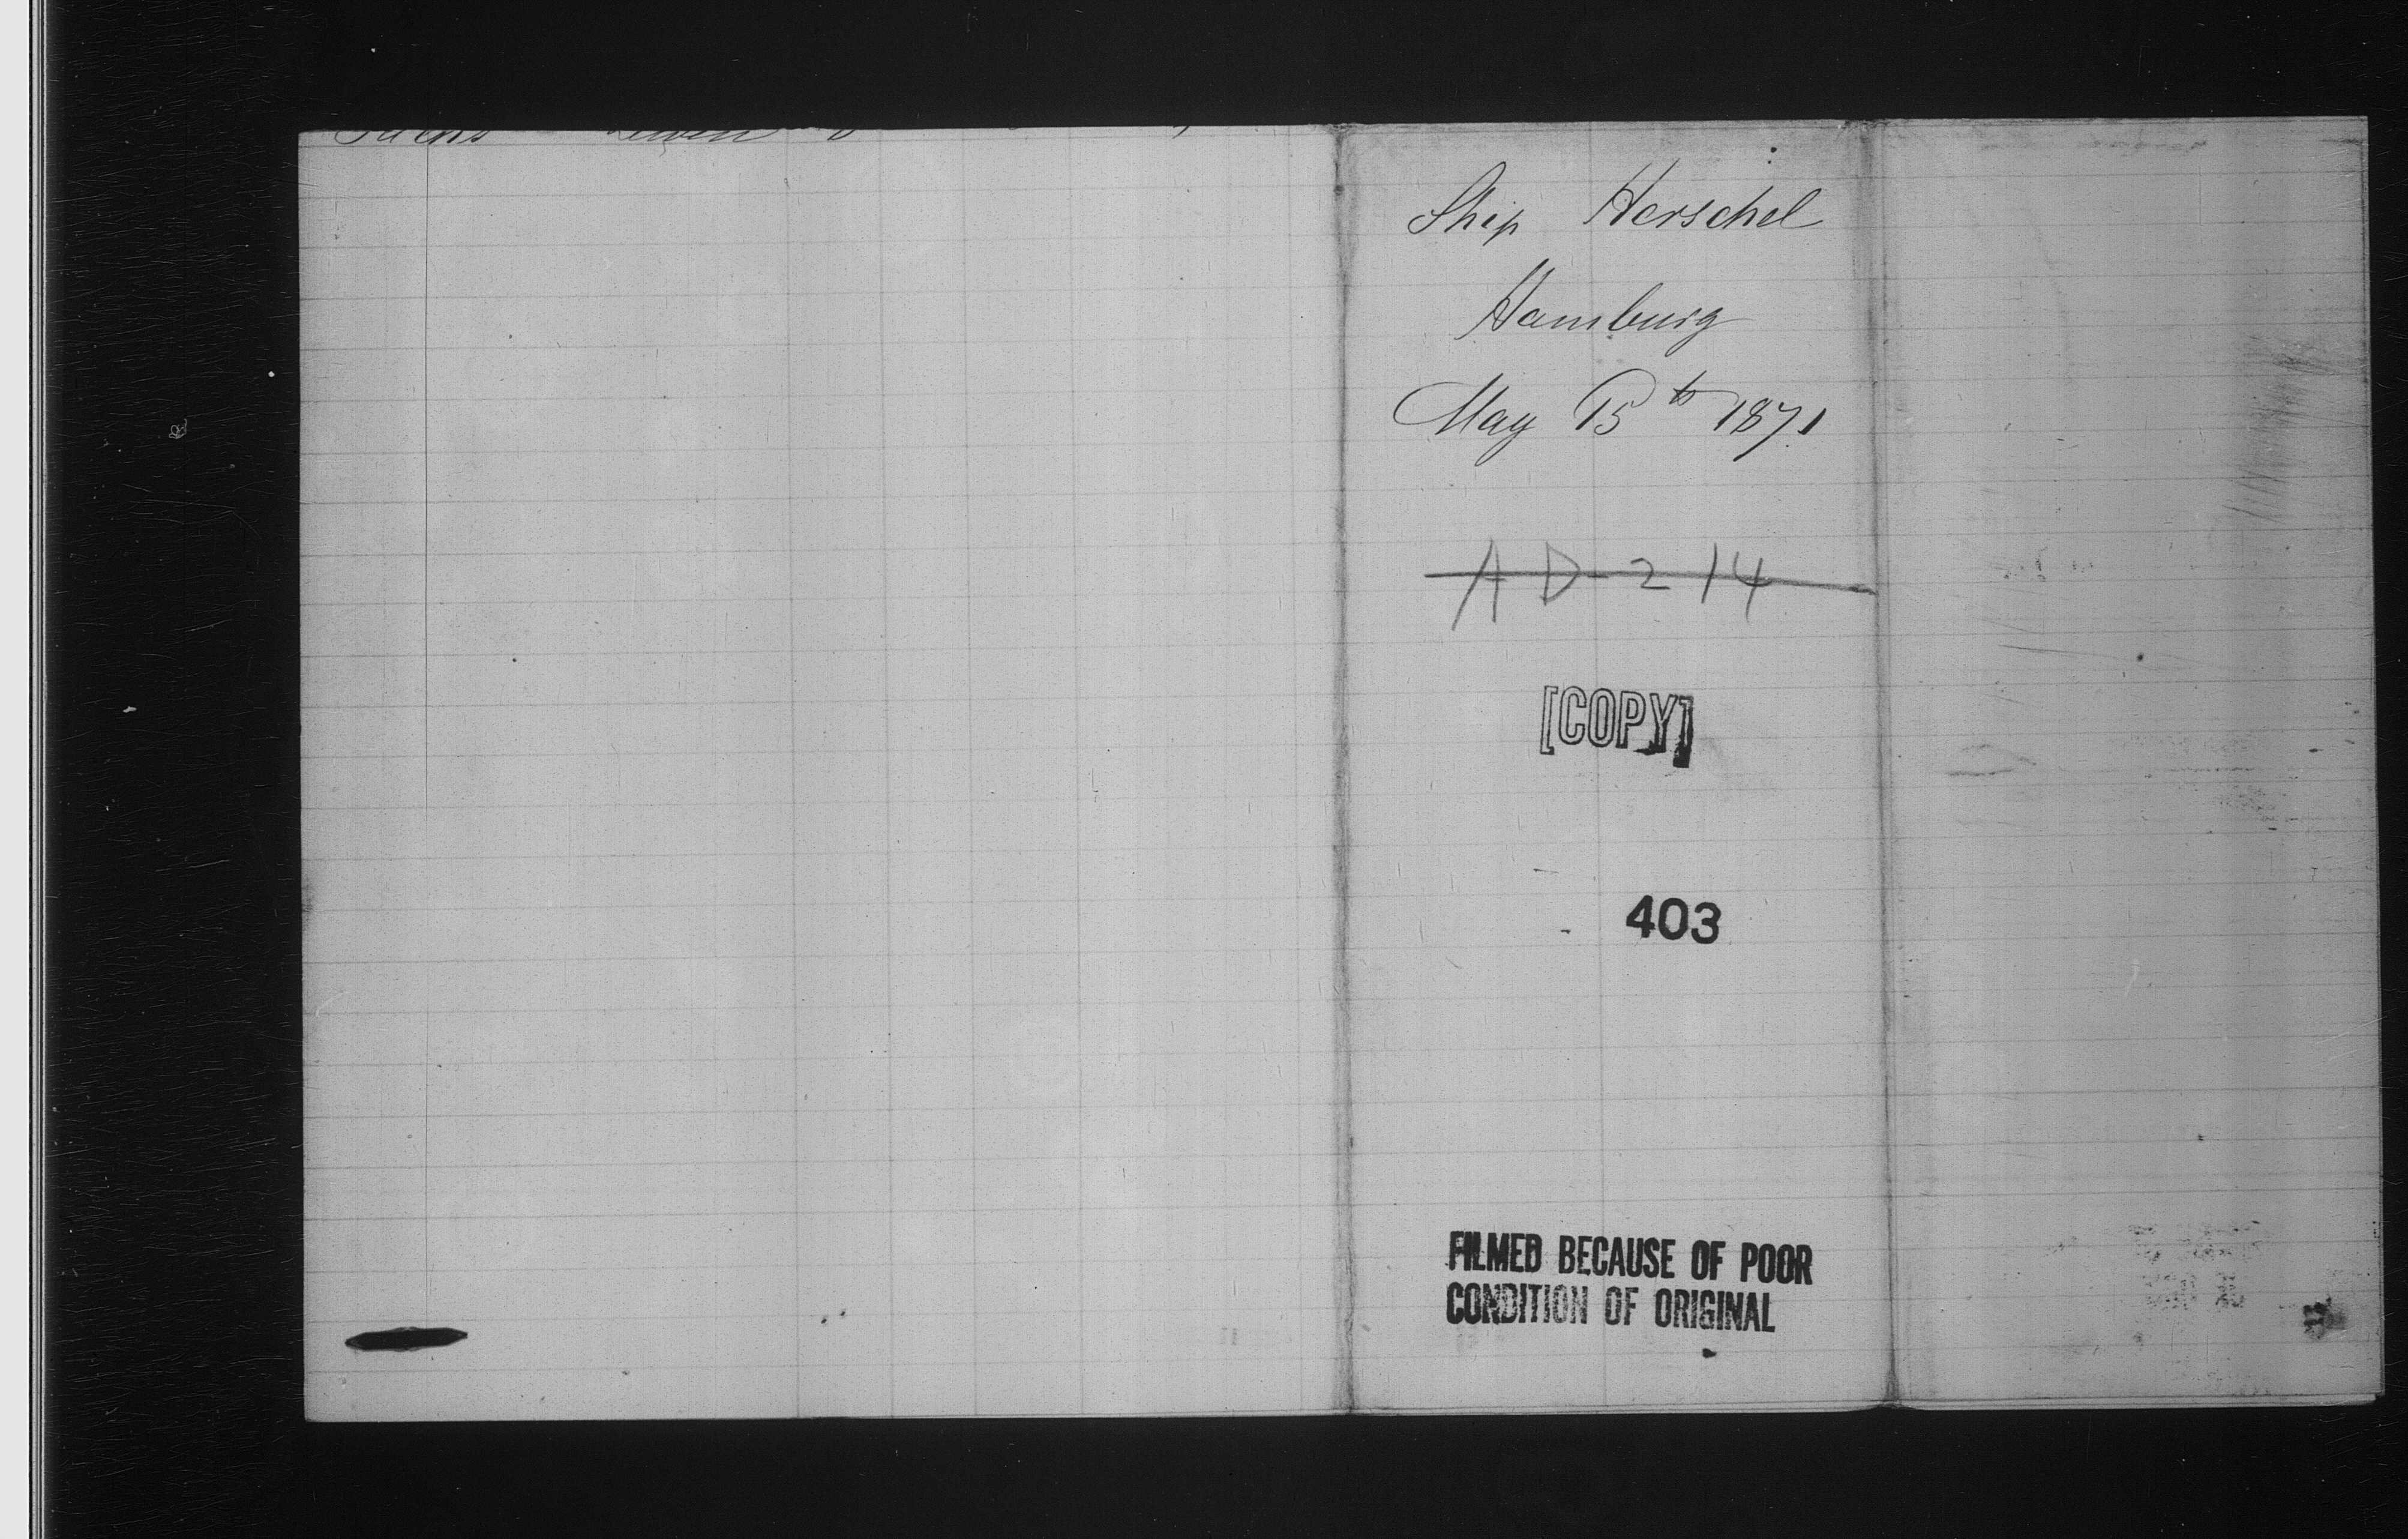 Ship Herschel
Hamburg
May 15th 1871
A D - 2 14
[COPY]
403
FILMED BECAUSE OF POOR
CONDITION OF ORIGINAL